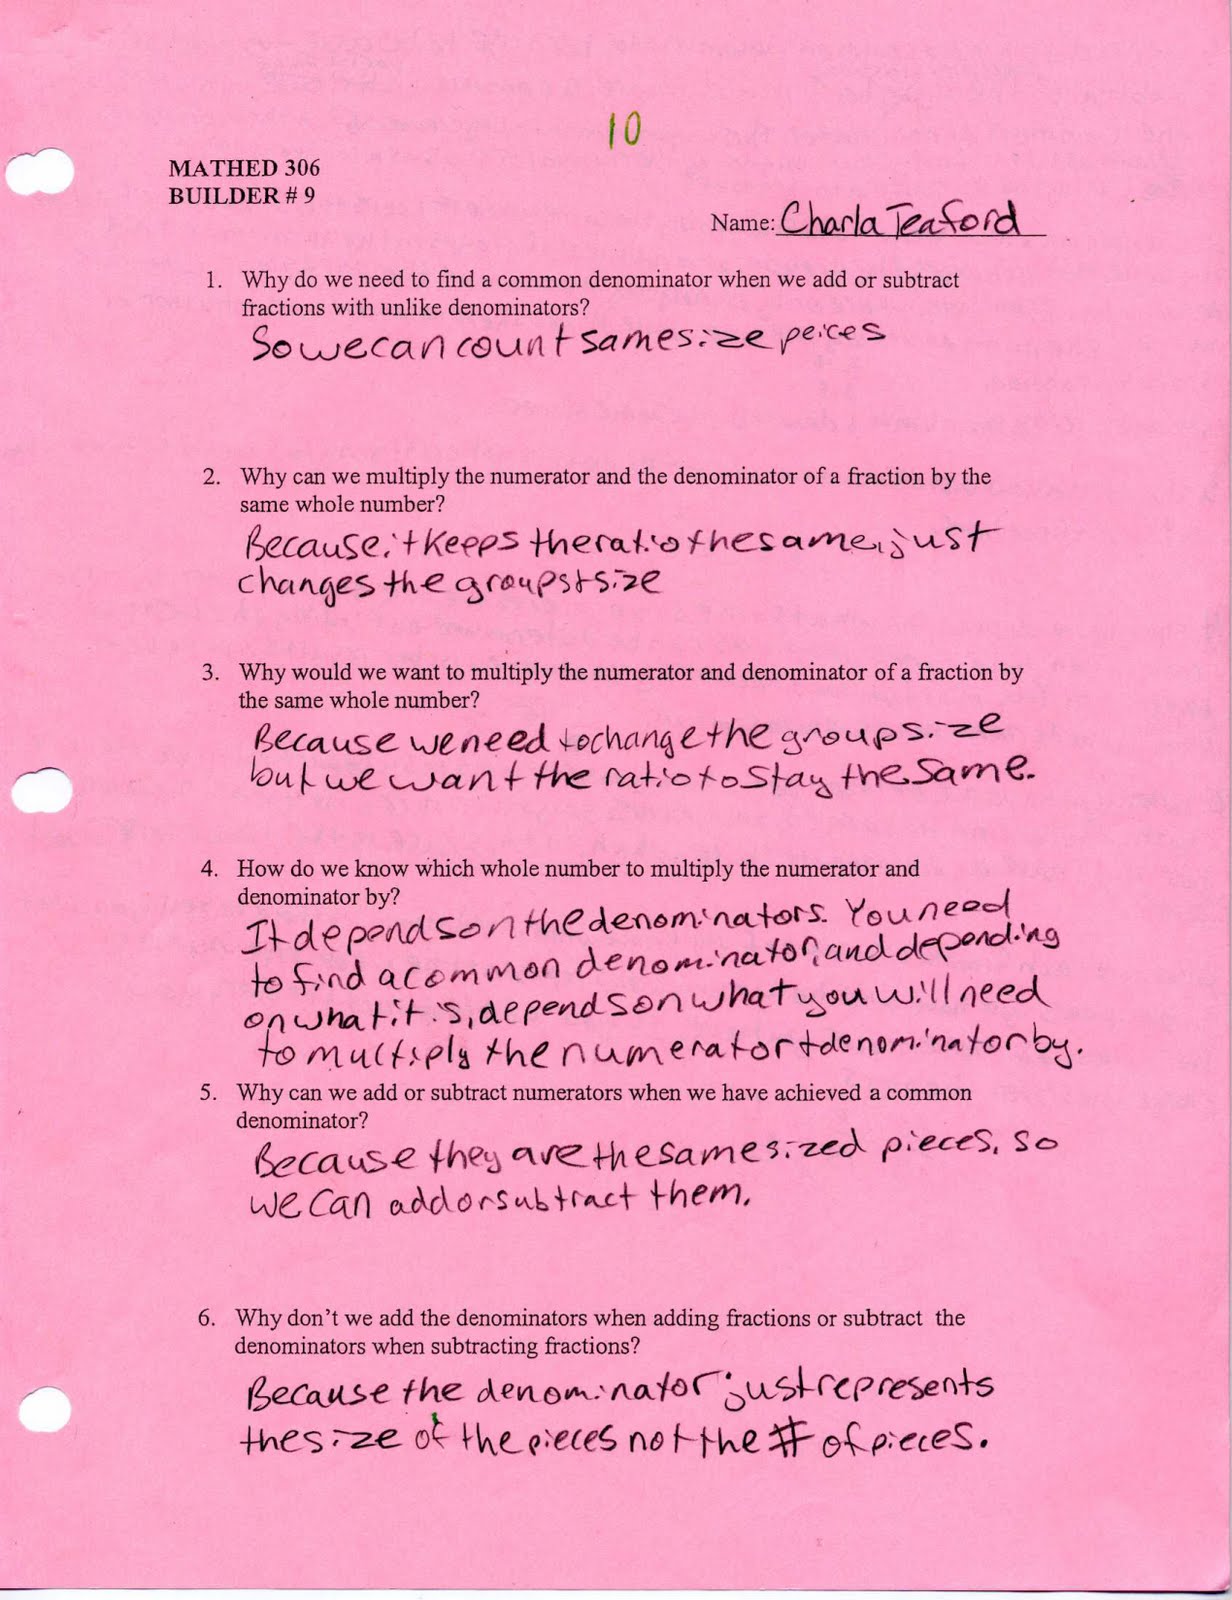 10
MATHED 306
BUILDER # 9
Name: Charla Teaford
1. Why do we need to find a common denominator when we add or subtract
fractions with unlike denominators?
So we can count same size peices
2. Why can we multiply the numerator and the denominator of a fraction by the
same whole number?
Because it keeps the ratio the same, just
changes the groups size
3. Why would we want to multiply the numerator and denominator of a fraction by
the same whole number?
Because we need to change the group size
but we want the ratio to stay the same.
4. How do we know which whole number to multiply the numerator and
denominator by?
It depends on the denominators. You need
to find a common denominator, and depending
on what it is, depends on what you will need
to multiply the numerator + denominator by.
5. Why can we add or subtract numerators when we have achieved a common
denominator?
Because they are the same sized pieces, so
we can add or subtract them.
6. Why don't we add the denominators when adding fractions or subtract the
denominators when subtracting fractions?
Because the denominator just represents
the size of the pieces not the # of pieces.